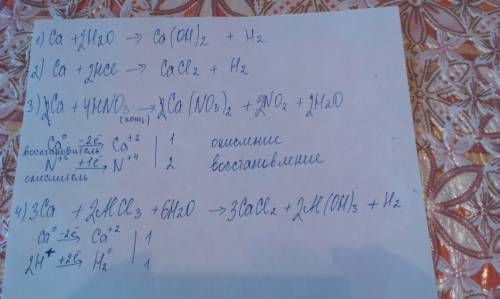 1) Ca + 2H2O → Ca(OH)2 + H2
2) Ca + 2HCl → CaCl2 + H2
3) 2Ca + 4HNO3 (конц) → 2Ca(NO3)2 + 2NO2 + 2H2O
Ca⁰ -2ē → Ca⁺² | 1 окисление
восстановитель
N⁺⁵ +1ē → N⁺⁴ | 2 восстановление
окислитель
4) 3Ca + 2AlCl3 + 6H2O → 3CaCl2 + 2Al(OH)3 + H2
Ca⁰ -2ē → Ca⁺² | 1
2H⁺ +2ē → H2⁰ | 1